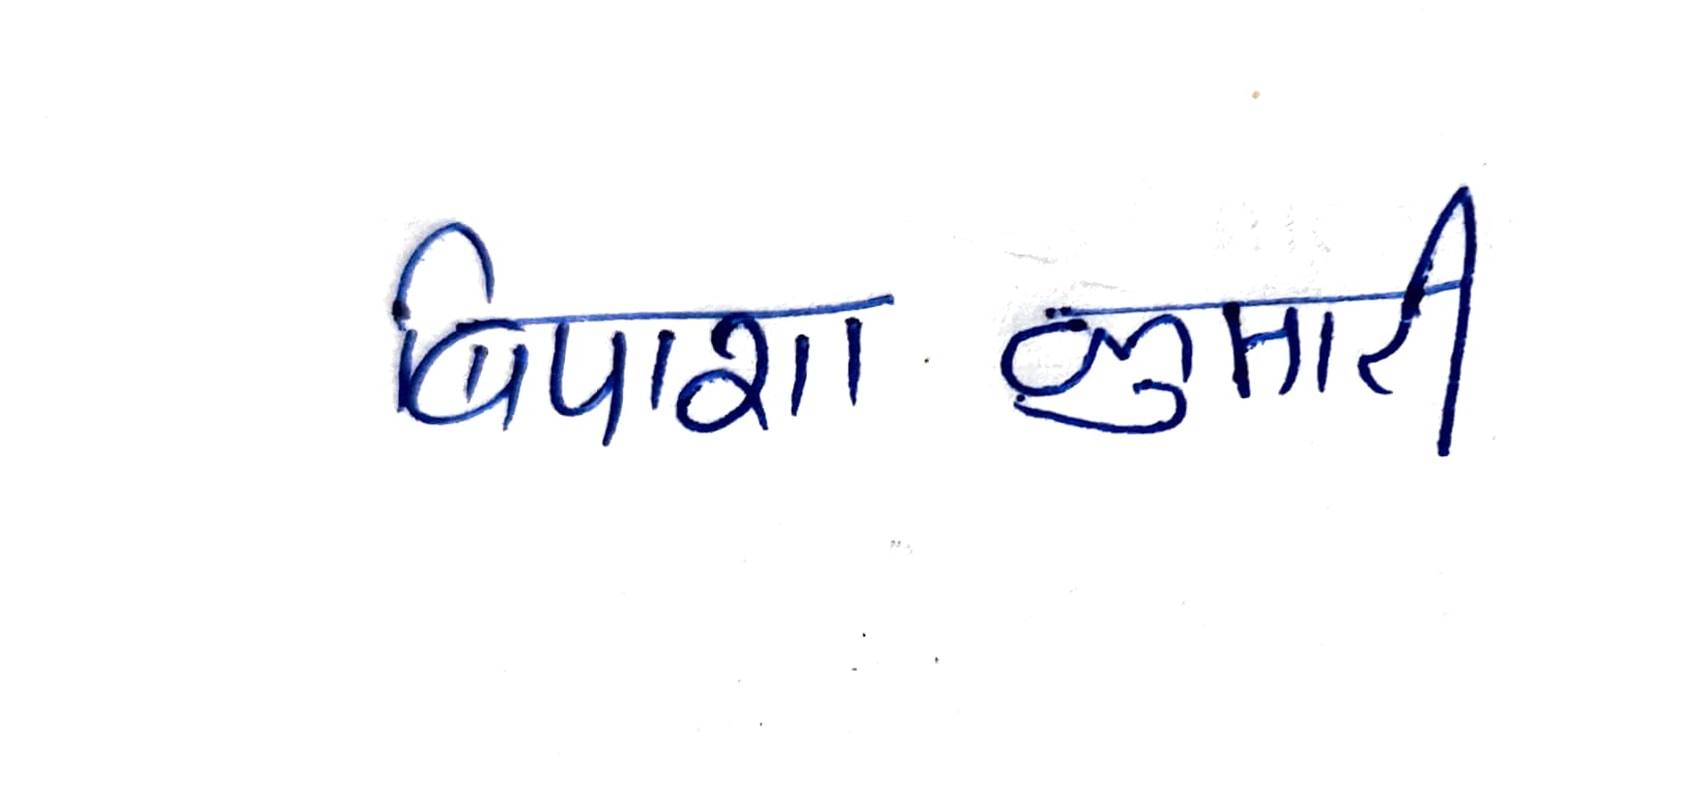 बिपाशा कुमारी